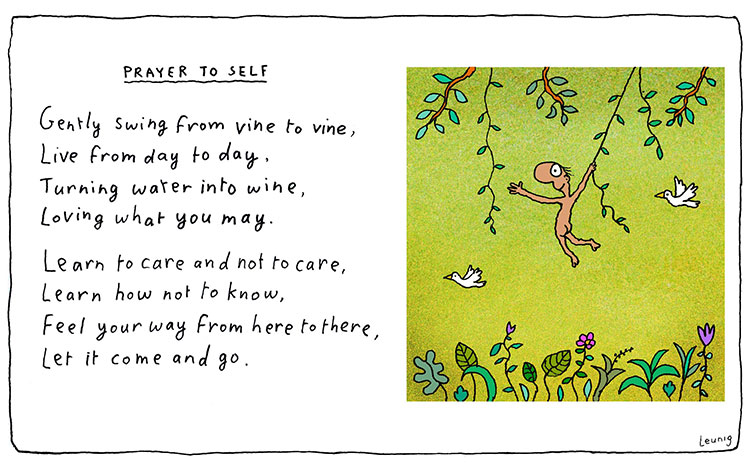 PRAYER TO SELF
Gently swing from vine to vine,
Live from day to day.
Turning water into wine,
Loving what you may.
Learn to care and not to care,
Learn how not to know,
Feel your way from here to there,
Let it come and go.
Leunig